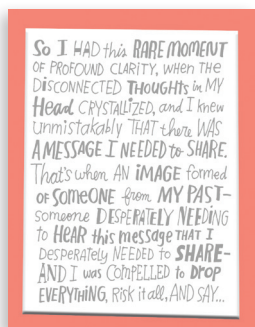 So I HAD this RARE MOMENT
OF PROFOUND CLARITY, WHEN THE
DISCONNECTED THOUGHTS in MY
Head CRYSTALLIZED, and I knew
unmistakably THAT there WAS
A MESSAGE I NEEDED to SHARE.
That's when AN iMAGE formed
OF SOMEONE from MY PAST-
someone DESPERATELY NEEDING
to HEAR this message THAT I
DESPERATELY NEEDED TO SHARE-
AND I was COMPELLED to DROP
EVERYTHING, Risk it all, AND SAY...